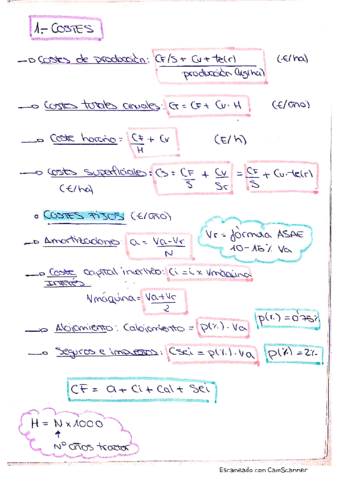 1.- COSTES
→ Costes de producción: CF/S + Cu + te(r) / producción (kg/ha) (€/ha)
→ Costes totales anuales: CT = CF + Cv · H (€/año)
→ Coste horario = CF/H + Cv (€/h)
→ Costes superficiales: Cs = CF/S + Cv/Sr = CF/S + Cu·te(r)
(€/ha)
• COSTES FIJOS (€/año)
→ Amortizaciones: a = Va-Vr / N
Vr = fórmula ASAE
10-15% Va
→ Coste capital invertido: Ci = i x Vmáquina
INTERÉS
Vmáquina = Va+Vr / 2
→ Alojamiento: Calojamiento = p(%) · Va p(%) = 0'75%
→ Seguros e impuestos: Csei = p(%) · Va p(%) = 2%
CF = a + Ci + Cal + Sei
H = N x 1000
↑
Nº años tractor
Escaneado con CamScanner